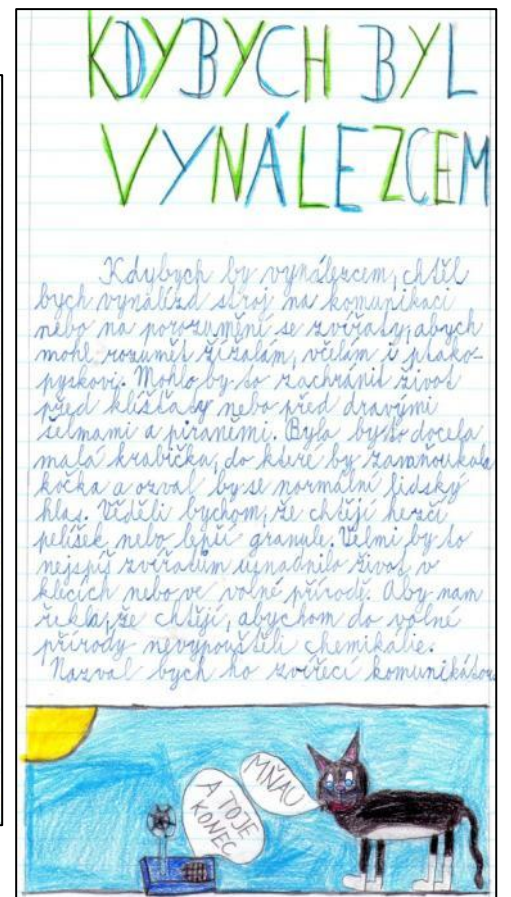 KDYBYCH BYL
VYNÁLEZCEM
Kdybych by vynálezcem, chtěl
bych vynalízd stroj na komunikaci
nebo na porozumění se zvířaty, abych
mohl rozumět žížalám, včelám i ptako-
pyskovi. Mohlo by to zachránit život
před klíšťaty nebo před dravými
šelmami a piraněmi. Byla by to docela
malá krabička, do které by zamňoukala
kočka a ozval by se normální lidský
hlas. Věděli bychom, že chtějí hezčí
pelíšek nebo lepší granule. Velmi by to
nejspíš zvířatům usnadnilo život v
klecích nebo ve volné přírodě. Aby nam
řekla, že chtějí, abychom do volné
přírody nevypouštěli chemikálie.
Nazval bych ho zvířecí komunikátor.
MŇAU
A TOJE
KONEC